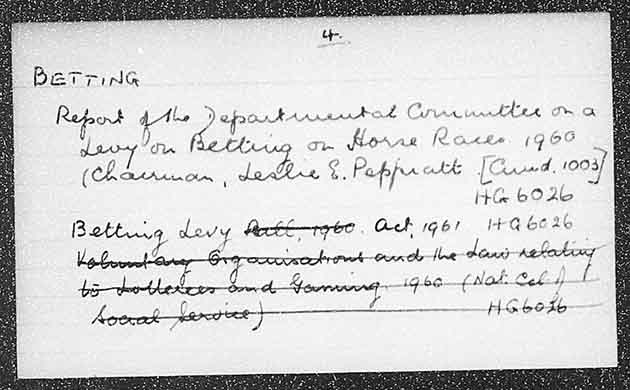 4.
BETTING
Report of the Departmental Committee on a
Levy on Betting on Horse Races 1960
(Chairman, Leslie E. Peppiatt [Cmnd. 1003]
HG 6026
Betting Levy Bill, 1960. Act, 1961 HG 6026
Voluntary Organisations and the Law relating
to Lotteries and Gaming 1960 (Nat. Col. of
Social Service)
HG6026